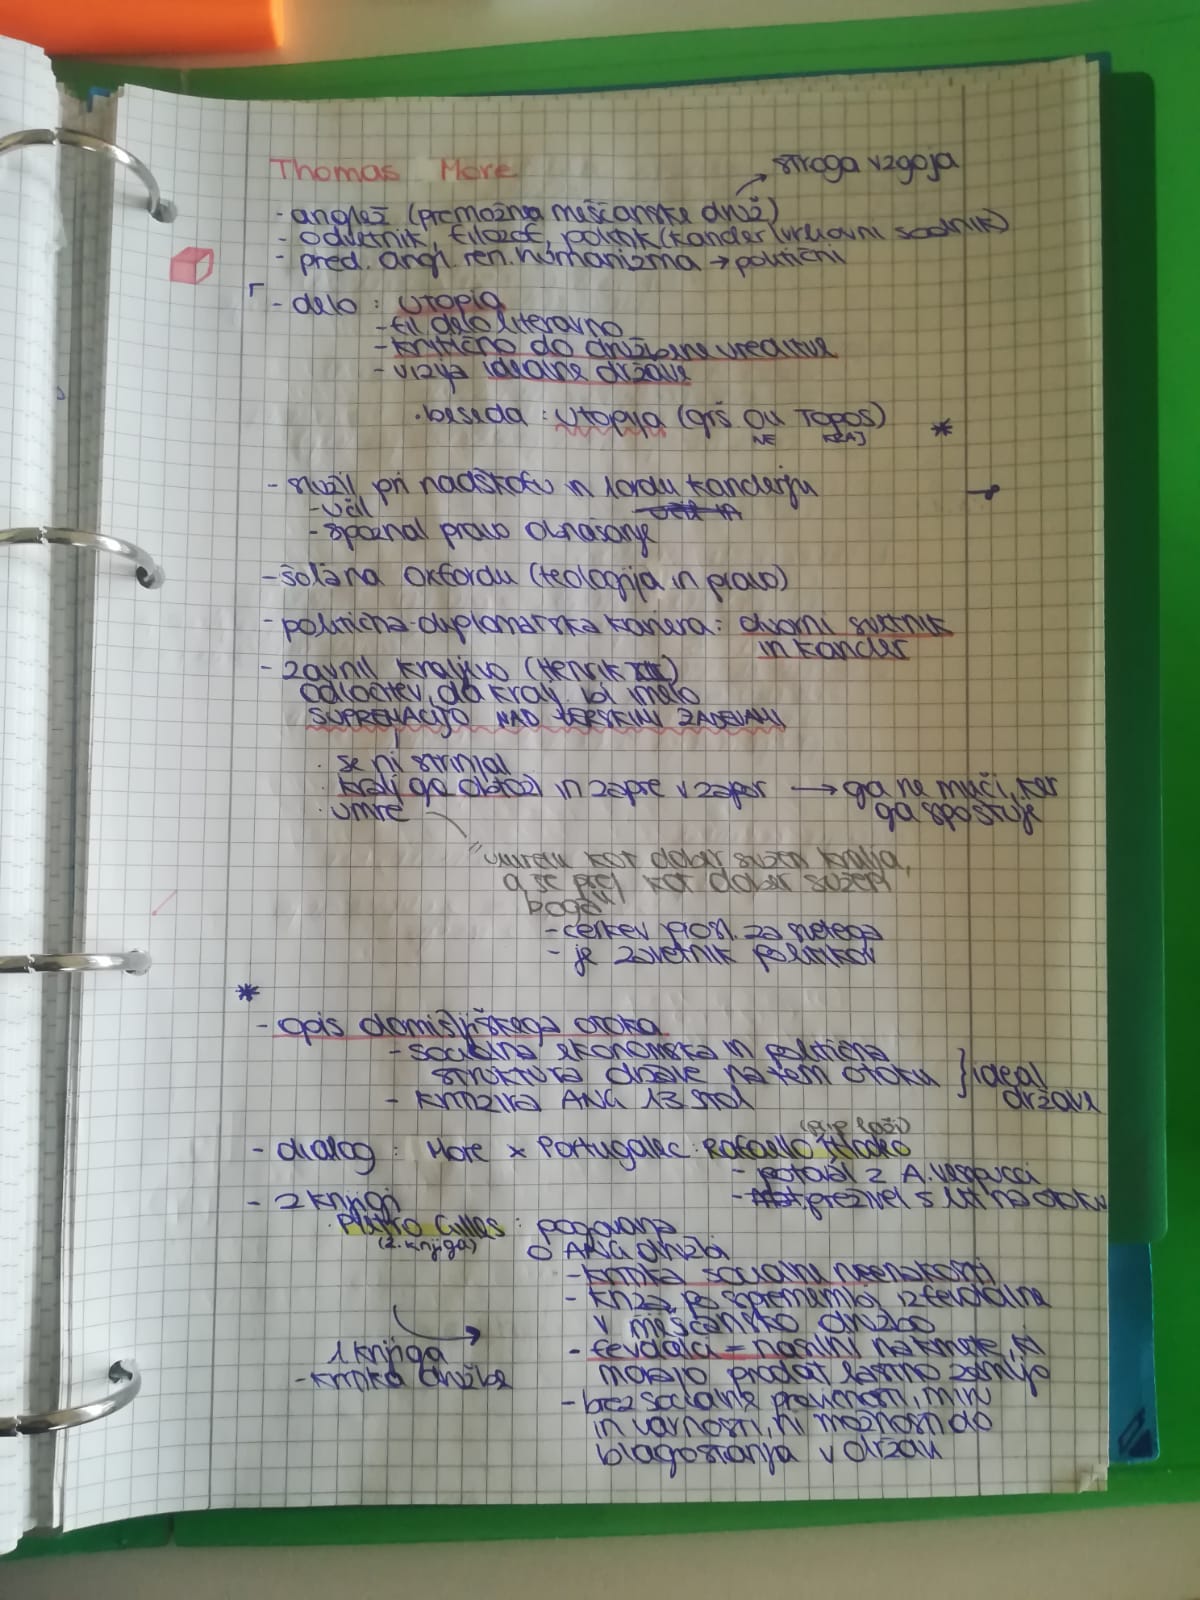 Thomas More
stroga vzgoja
- anglež (premožna meščanske druž)
- odvetnik, filozof, politik (kancler vrhovni sodnik)
- pred. angl. ren. humanizma → politični
- delo : Utopia
- fil delo literarno
- kritično do družbene ureditve
- vizija idealne države
· beseda : Utopija (grš OU TOPOS) *
NE KRAJ
- služil pri nadškofu in lordu kanclerju
- učil
- spoznal pravo obnašanje
- šola na Oxfordu (teologija in pravo)
- politična-diplomatska kariera : dvorni svetnik
in kancler
- zavrnil kraljevo (Henrik VIII)
odločitev, da kralj bi imel
SUPREMACIJO NAD VERSKIMI ZADEVAMI
· se ni strinjal
· kralj ga obtoži in zapre v zapor → ga ne muči, ker
ga spoštuje
· umre
"umrem kot dober služen kralja,
a še prej kot dober služen
boga"
- cerkev progl. za svetega
- je zavetnik politikov
*
- opis domišljiskega otoka
- socialna ekonomska in politična
struktura države na tem otoku } ideal
države
- kritizira ANG 13 stol
- dialog : More x Portugalec : Rafaello
- potoval z A. Vespucci
- preživel 5 let na otoku
- 2 knjigi
· Pietro Gilles : pogovarja
(2. knjiga)
o ANG družbi
- kritika socialne neenakosti
- kriza po spremembi iz fevdalne
v meščansko družbo
1 knjiga
- kritika družbe
- fevdalci = nasilni na kmete, ki
morajo prodat lastno zemljo
- brez socialne pravičnosti, miru
in varnosti, ni možnosti do
blagostanja v državi